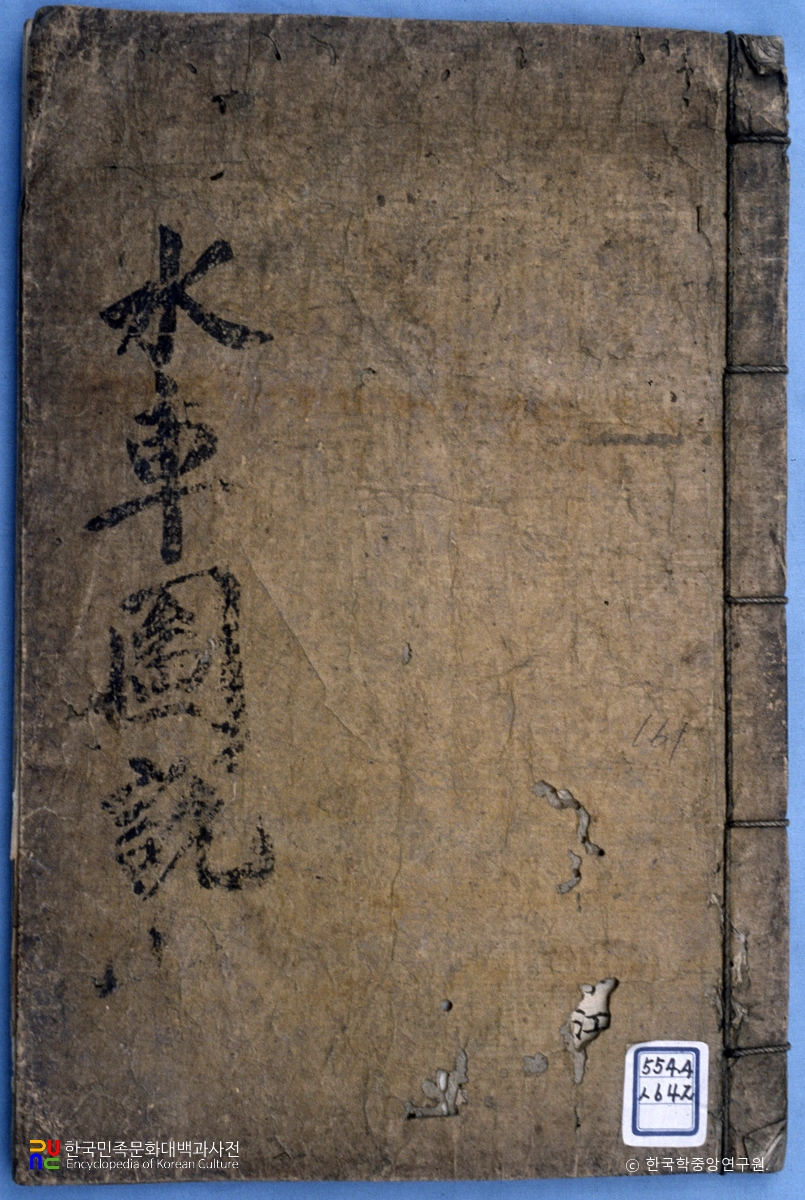 水車圖說
161
554.4
ㅅ64ㅈ
PUNC
한국민족문화대백과사전
Encyclopedia of Korean Culture
© 한국학중앙연구원